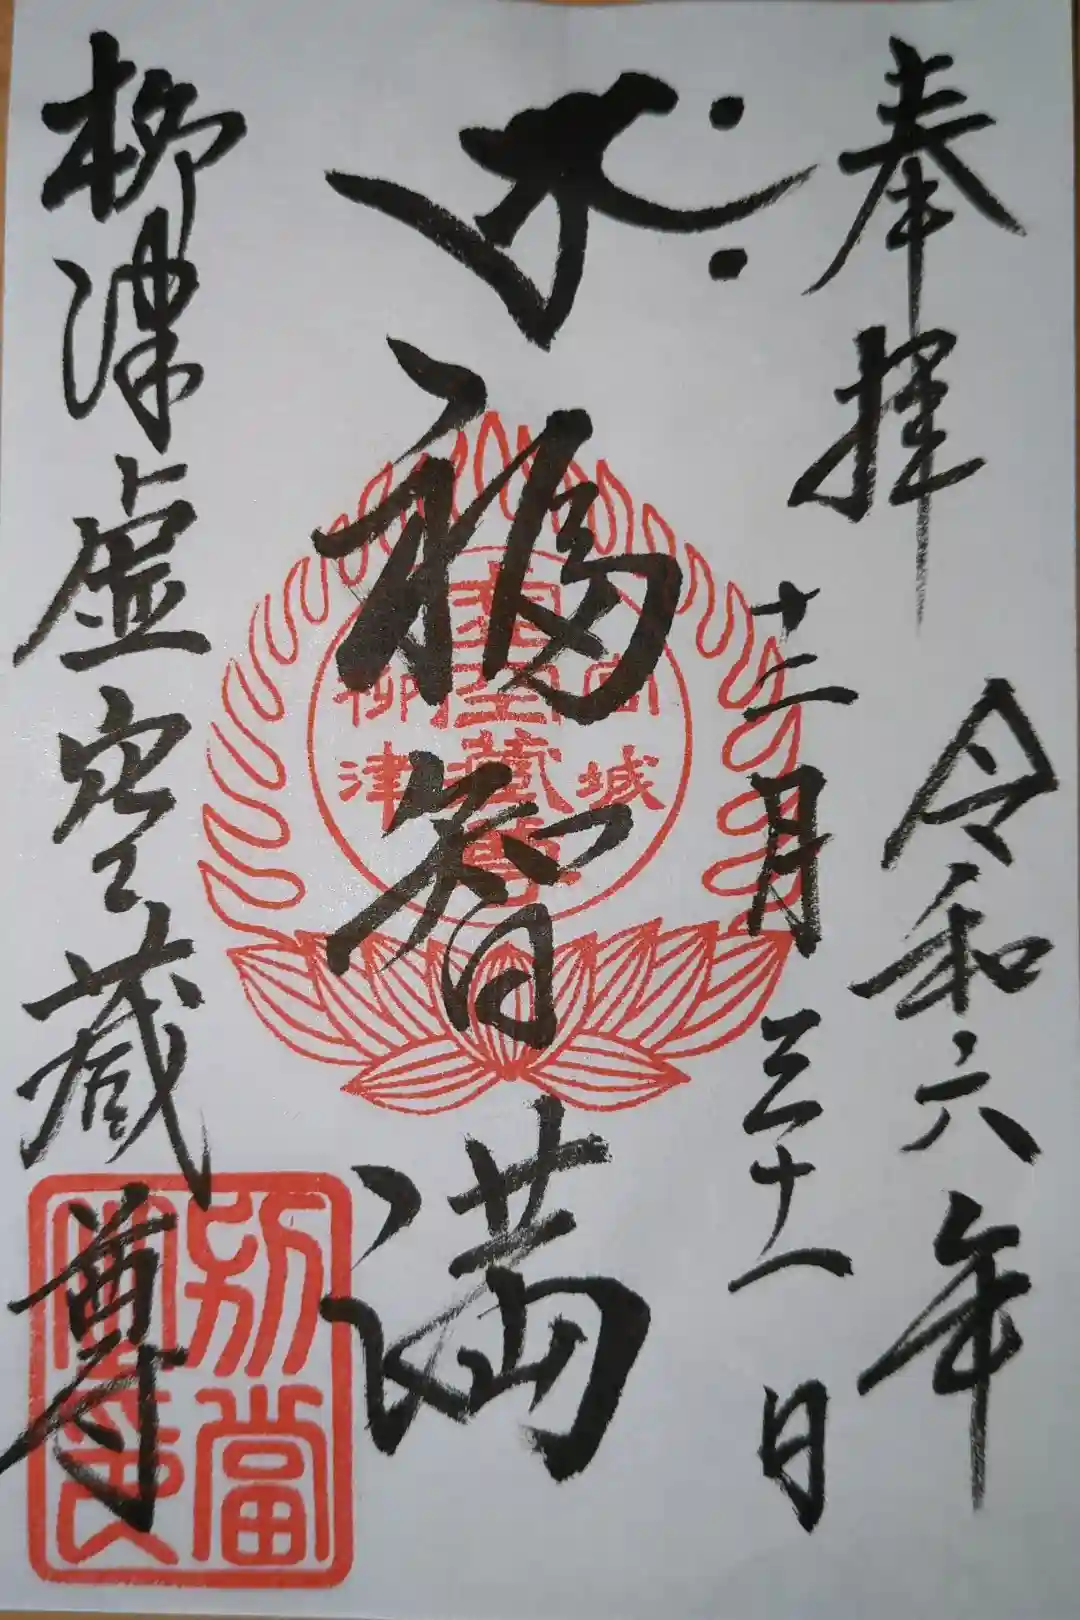 奉拝
令和六年
十二月三十一日
福智満
柳津虚空蔵尊
宮城
虚空蔵尊
柳津
別當